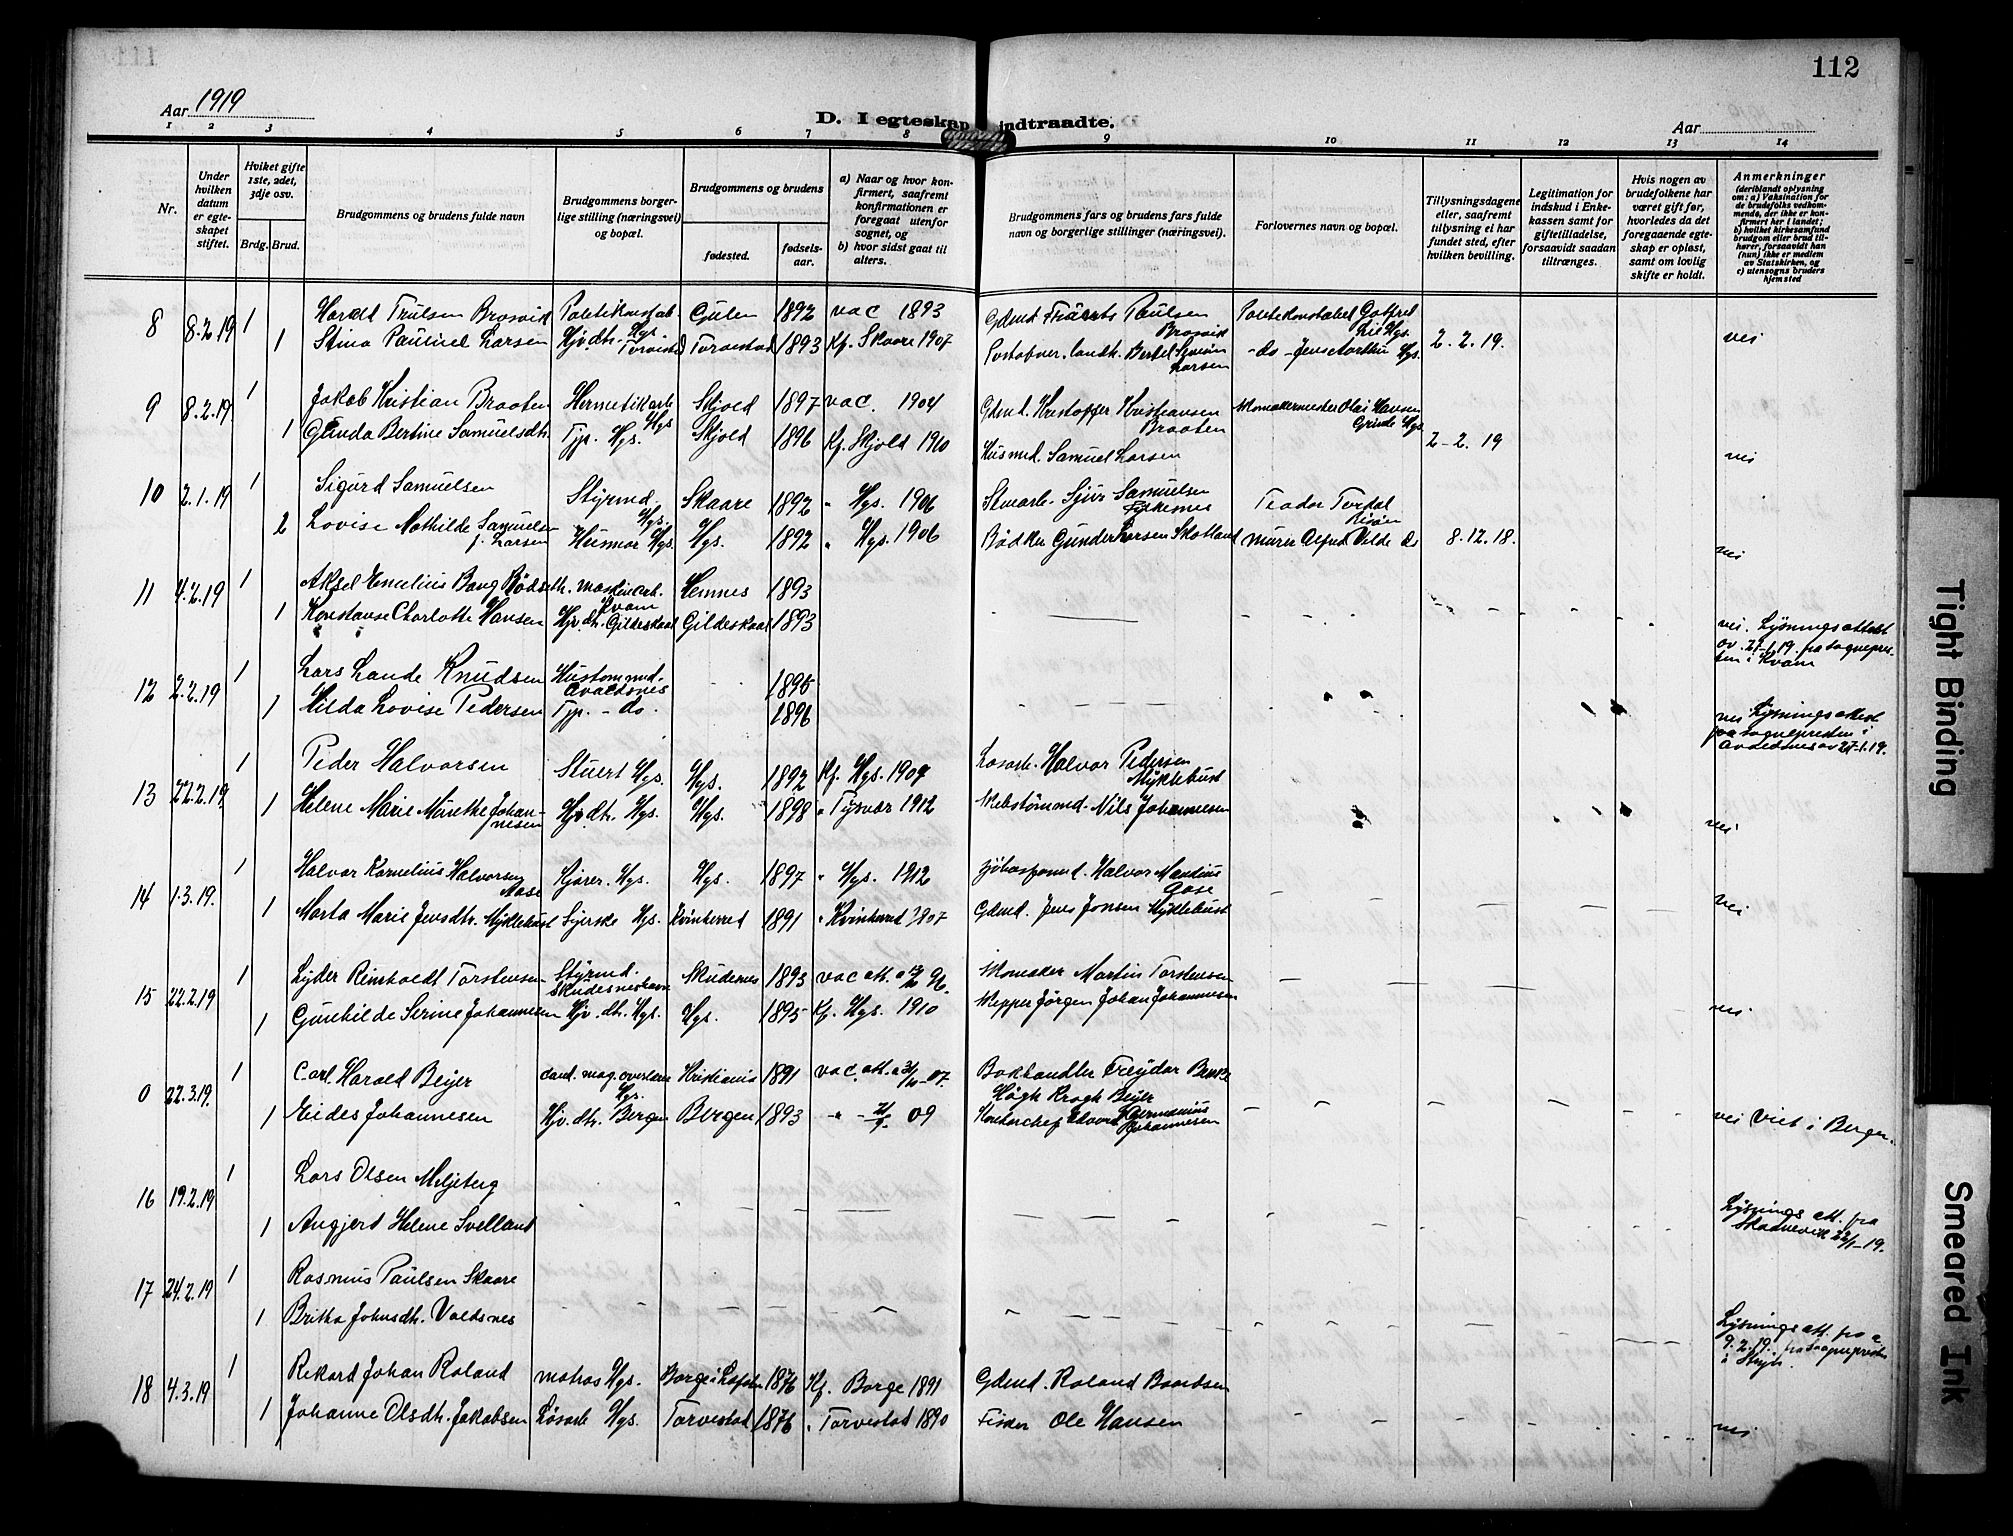 111
112
Aar 1919
D. I egteskap indtraadte.
Aar
1 2 3 4 5 6 7 8 9 10 11 12 13 14
Nr.
Under hvilken datum er egteskapet stiftet.
Hviket gifte 1ste, 2det, 3dje osv.
Brdg. Brud.
Brudgommens og brudens fulde navn
Brudgommens borgerlige stilling (næringsvei) og bopæl.
Brudgommens og brudens
fødested.
fødselsaar.
a) Naar og hvor konfirmert, saafremt konfirmationen er foregaat utenfor sognet, og b) hvor sidst gaat til alters.
Brudgommens fars og brudens fars fulde navn og borgerlige stillinger (næringsvei).
Forlovernes navn og bopæl.
Tillysningsdagene eller, saafremt tillysning ei har fundet sted, efter hvilken bevilling.
Legitimation for indskud i Enkekassen samt for giftetilladelse, forsaavidt saadan tiltrænges.
Hvis nogen av brudefolkene har været gift før, hvorledes da det foregaaende egteskap er opløst, samt om lovlig skifte er holdt.
Anmerkninger (deriblandt oplysning om: a) Vaksination for de brudefolks vedkommende, der ikke er konfirmert her i landet; b) hvilket kirkesamfund brudgom eller brud tilhører, forsaavidt han (hun) ikke er medlem av Statskirken, og c) utensogns bruders hjemsted
8 8.2.19 1 Harald Trulsen Brosvik Politikonstab. Hgs. Gulen 1892 vac 1893 Gdmd. Paulsen Brosvik Politikonstabel Gotfred Lie Hgs.
1 Stina Pauline Larsen Hjv.dtr. Torvestad Torvestad 1893 Kf. Skaare 1907 Postaabner, landh. Bertel Simon Larsen - do - Jens Aarthu Hgs. 2.2.19. nei
9 8.2.19 1 Jakob Kristian Braaten Hermetikarb. Hgs Skjold 1897 vac. 1904 Gdmd. Kristoffer Kristiansen Braaten Skomakermester Olai Hansen Grinde Hgs.
1 Gunda Bertine Samuelsdtr. Tjp. Hgs. Skjold 1896 Kf. Skjold 1910 Husmd. Samuel Larsen 2-2.19 nei
10 2.1.19 1 Sigurd Samuelsen Styrmd. Hgs. Skaare 1892 " Hgs. 1906 Stuearb. Sjur Samuelsen Teodor Tordal
2 Lovise Mathilde Samuelsen f. Larsen Husmor Hgs. Hgs. 1892 " Hgs. 1906 Bødker Gunder Larsen Skotland murer Alfred Vilde do 8.12.18. nei
11 4.2.19 1 Aksel Emelius Bang Rødseth. maskinarb. Kvam Hemnes 1893
1 Konstanse Charlotte Hansen Hjv.dtr. Gildeskaal Gildeskaal 1893 nei. Lysningsattest av 27-1.19. fra sognepresten i Kvam
12 2.2.19 1 Lars Lande Knudsen Hustømmd. Avaldsnes 1895
1 Hilda Lovise Pedersen Tjp. - do. 1896 nei Lysningsattest fra sognepresten i Avaldsnes av 27.1.19.
13 22.2.19 1 Peder Halvorsen Stuert Hgs. Hgs. 1892 Kf. Hgs. 1907 Løsarb. Halvor Pedersen Myklebust
1 Helene Marie Mirethe Johannesen Hjv.dtr. Hgs. Hgs. 1898 " Tysvær 1912 Skibstømmd. Nils Johannesen nei
14 1.3.19. 1 Halvor Kornelius Halvorsen Aase Kjører. Hgs. Hgs. 1897 " Hgs. 1912 Halvor Martinus Aase
1 Marta Marie Jensdtr. Myklebust Syerske Hgs. Kvinherred 1891 " Kvinherred 1907 Gdmd. Jens Jonsen Myklebust nei
15 22.2.19 1 Lyder Reinholdt Torstensen Styrmd. Skudeneshavn Skudenes 1893 vac att. Skomaker Martin Torstensen
1 Gunhilde Serine Johannesen Hjv. dtr. Hgs. Hgs. 1895 Kf. Hgs. 1910 Skipper Jørgen Johan Johannesen nei
0 22.3.19. 1 Carl Harald Beyer cand. mag. overlærer Hgs. Kristiania 1891 vac. att. 31/10-07. Bokhandler Høgh Krogh Beyer
1 Johannesen Hjv.dtr. Bergen Bergen 1893 09 Kontorchef Edvard Germanius Johannesen nei Viet i Bergen.
16 19.2.19 1 Lars Olsen Miljeteig
1 Angjerd Helene Svelland Lysnings att. fra Skaanevik 22/1-19.
17 24.2.19 1 Rasmus Paulsen Skaare
1 Britha Johnsdtr. Valdsnes Lysnings att. fra 9.2.19. fra sognepresten i
18 4.3.19 1 Rikard Johan Roland matros Hgs. Borge i Lofoten 1876 Kf. Borge 1891 Gdmd. Roland Baardsen
1 Johanne Olsdtr. Jakobsen Løsarb Hgs. Torvestad 1876 " Torvestad 1890 Fisker Ole Hansen nei
Tight Binding
Smeared Ink